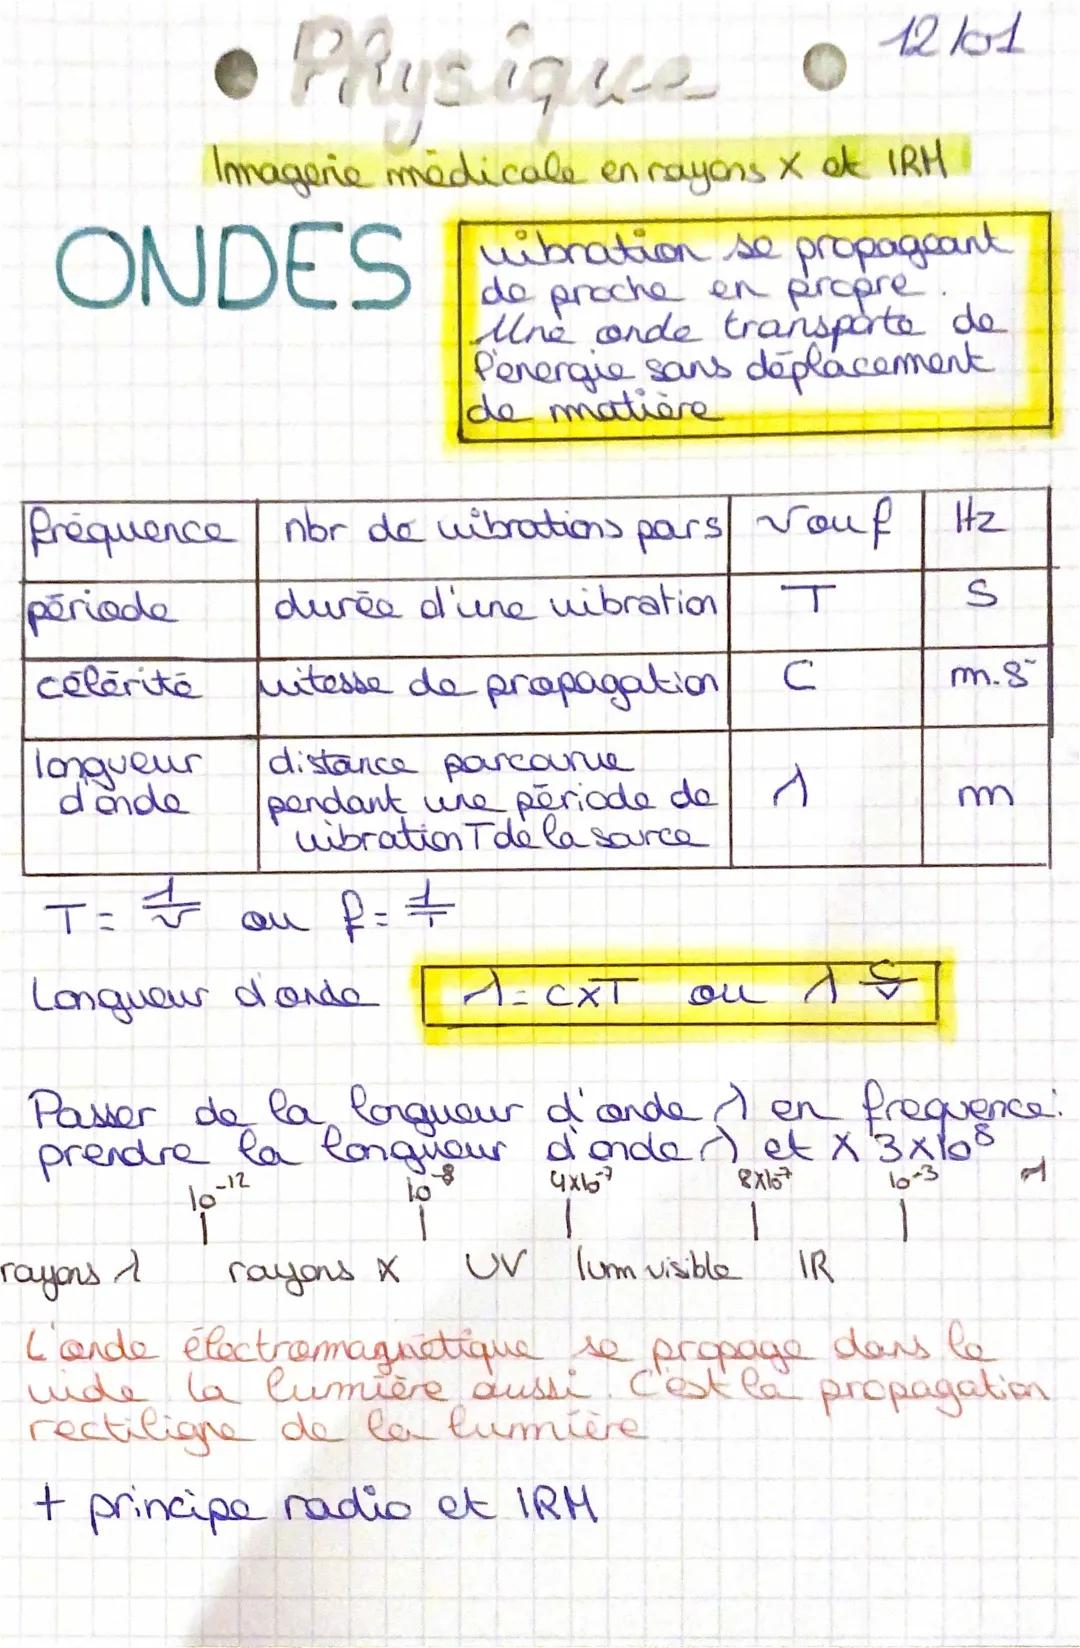 Physique 12/01
Imagerie médicale en rayons X et IRM
ONDES
vibration se propageant
de proche en propre.
Une onde transporte de
l'énergie sans déplacement
de matière
fréquence nbr de vibrations par s ν ou f Hz
période durée d'une vibration T S
célérité vitesse de propagation C m.s⁻
longueur
d'onde
distance parcourue
pendant une période de
vibration T de la source
λ m
T = 1/ν ou f = 1/T
Longueur d'onde λ = C×T ou λ C/ν
Passer de la longueur d'onde λ en frequence:
prendre la longueur d'onde λ et × 3×10⁸
10⁻¹² 10⁻⁸ 4×10⁻⁷ 8×10⁻⁷ 10⁻³ λ
rayons λ rayons X UV lum visible IR
L'onde électromagnétique se propage dans le
vide la lumière aussi. C'est la propagation
rectiligne de la lumière
+ principe radio et IRM